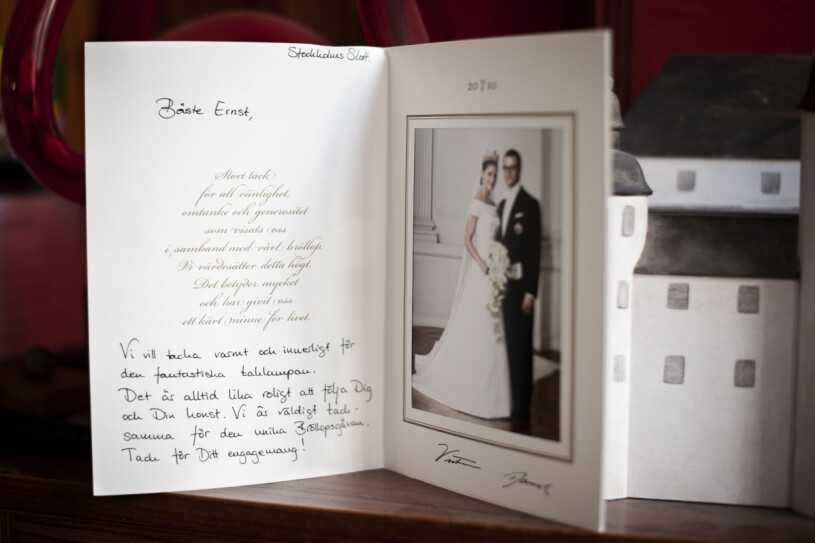 Stockholms Slott.
Bäste Ernst,
Stort tack
för all vänlighet,
omtanke och generositet
som visats oss
i samband med vårt bröllop.
Vi värdesätter detta högt.
Det betyder mycket
och har givit oss
ett kärt minne för livet.
Vi vill tacka varmt och innerligt för
den fantastiska taklampan.
Det är alltid lika roligt att följa Dig
och Din konst. Vi är väldigt tack-
samma för den unika Bröllopsgåvan.
Tack för Ditt engagemang!
20 10
Victoria
Daniel